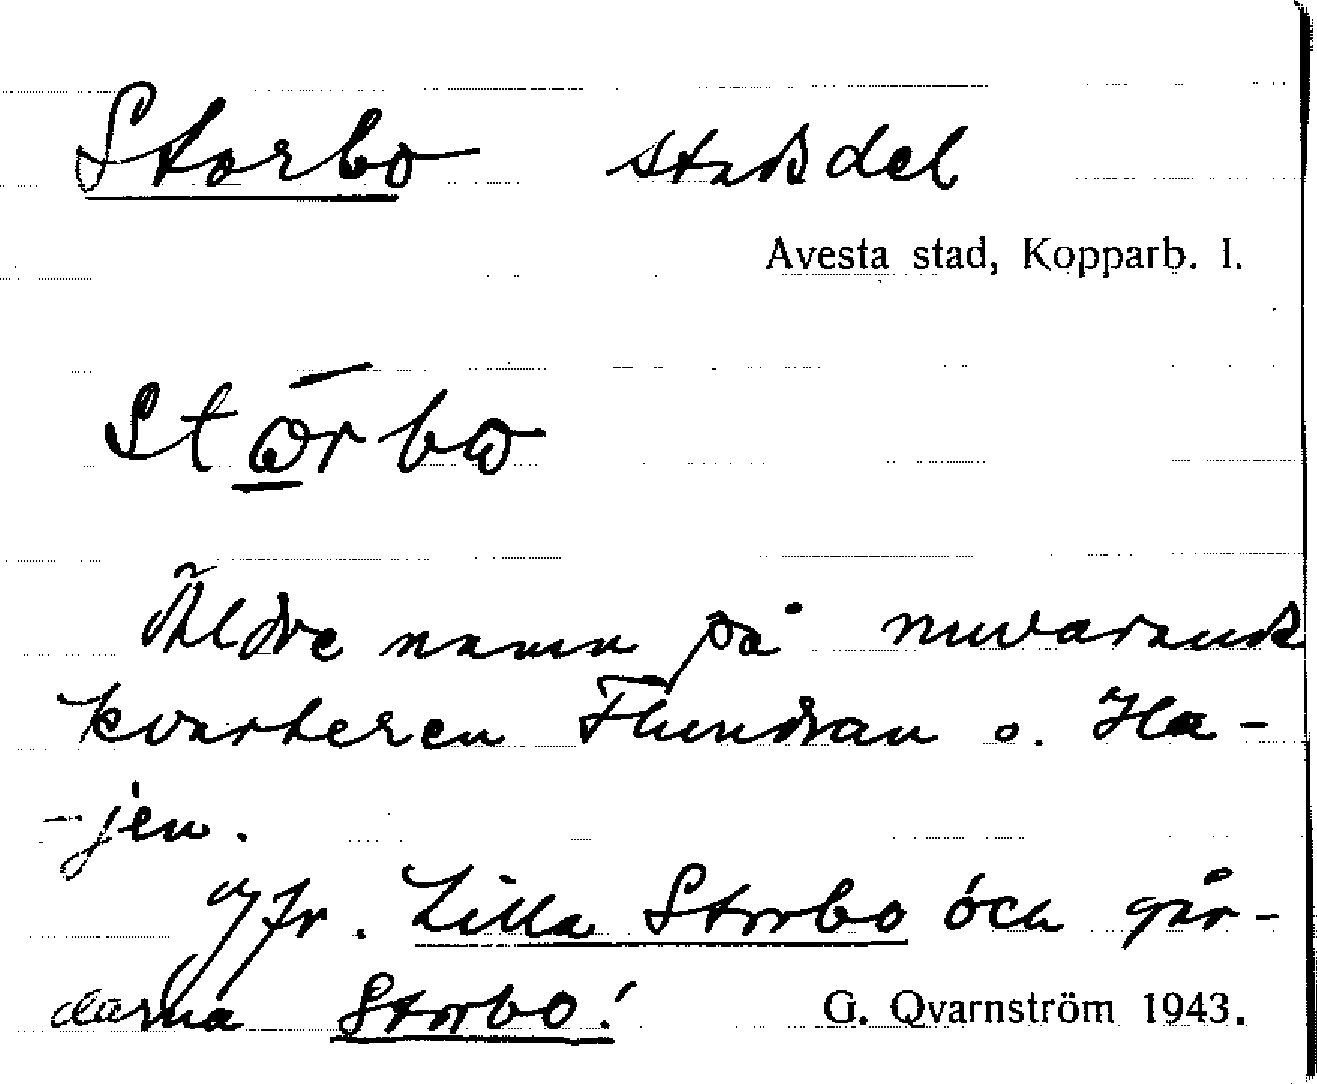 Storbo stadsdel
Avesta stad, Kopparb. l.
Stω̄rbω
Äldre namn på nuvarande
kvarteren Flundran o. Ha-
-jen.
Jfr. Lilla Storbo och går-
darna Storbo!
G. Qvarnström 1943.